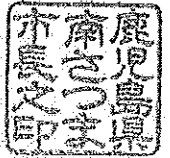 鹿児島県
南さつま
市長之印